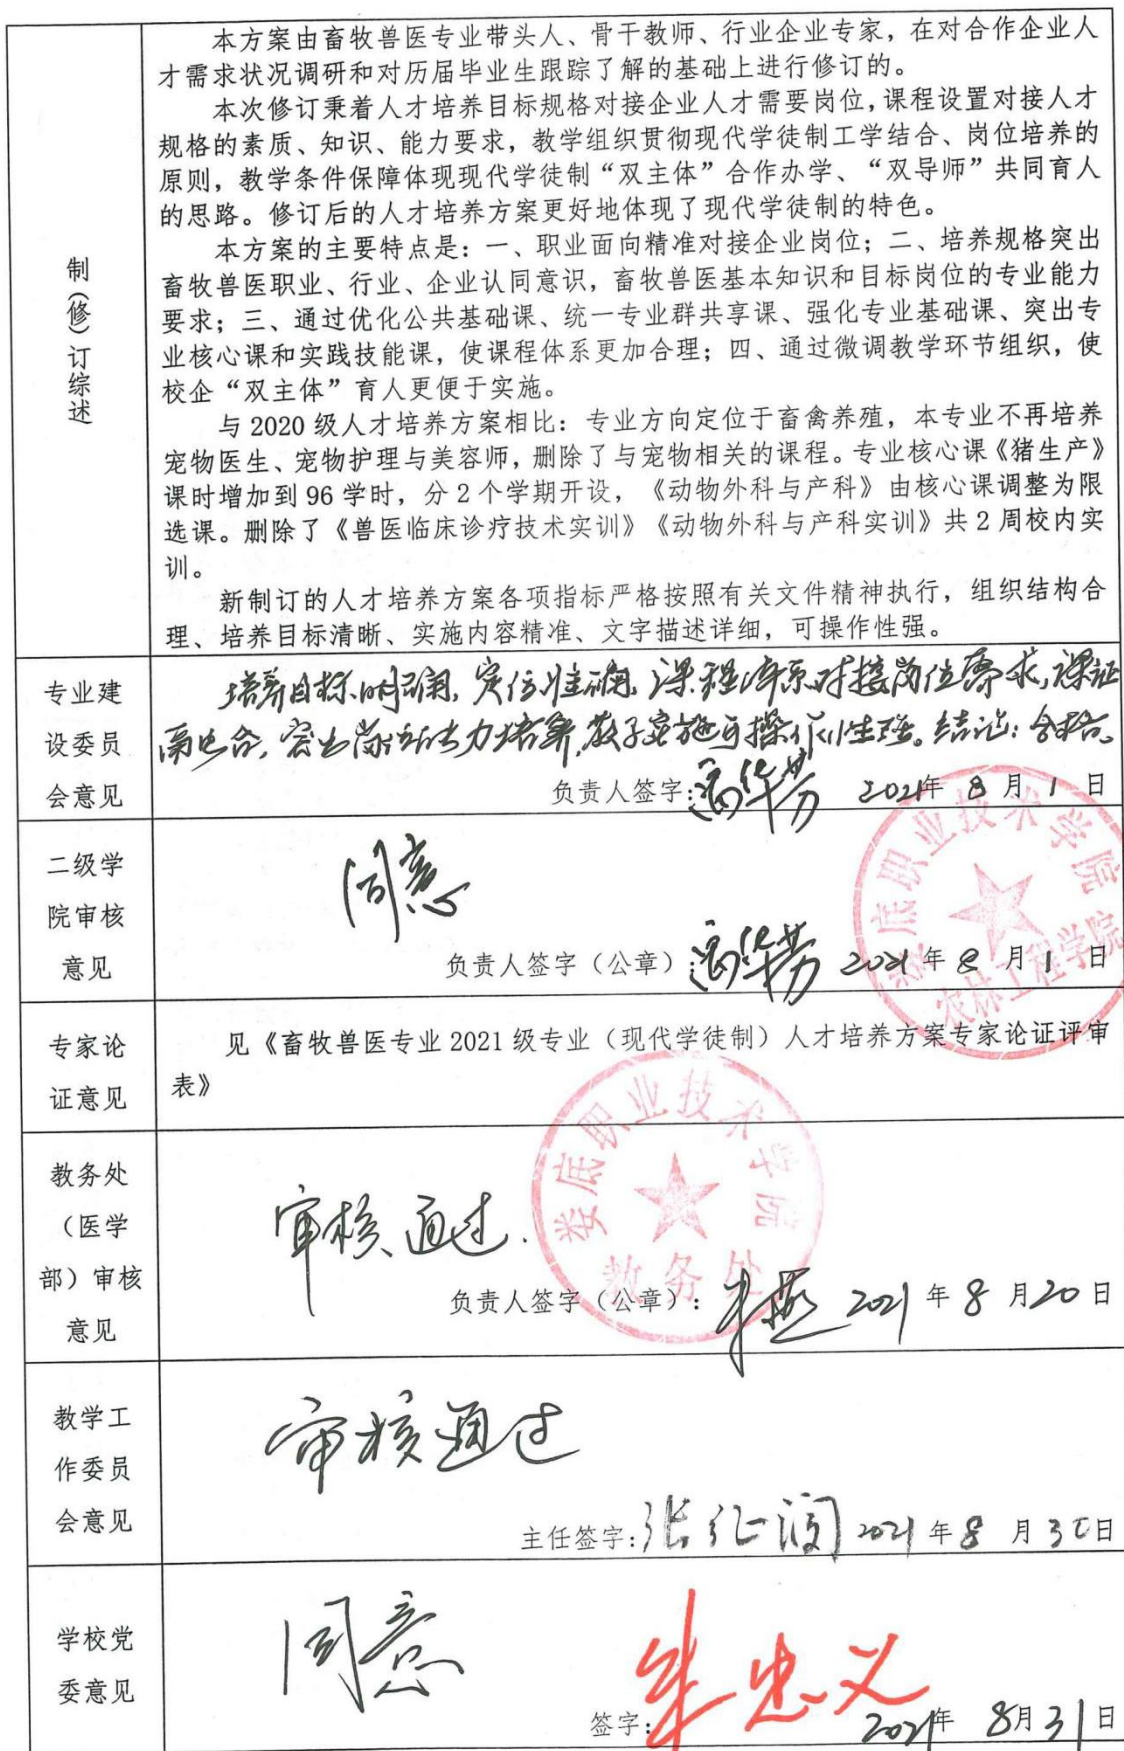 制(修)订综述
本方案由畜牧兽医专业带头人、骨干教师、行业企业专家，在对合作企业人
才需求状况调研和对历届毕业生跟踪了解的基础上进行修订的。
本次修订秉着人才培养目标规格对接企业人才需要岗位，课程设置对接人才
规格的素质、知识、能力要求，教学组织贯彻现代学徒制工学结合、岗位培养的
原则，教学条件保障体现现代学徒制“双主体”合作办学、“双导师”共同育人
的思路。修订后的人才培养方案更好地体现了现代学徒制的特色。
本方案的主要特点是：一、职业面向精准对接企业岗位；二、培养规格突出
畜牧兽医职业、行业、企业认同意识，畜牧兽医基本知识和目标岗位的专业能力
要求；三、通过优化公共基础课、统一专业群共享课、强化专业基础课、突出专
业核心课和实践技能课，使课程体系更加合理；四、通过微调教学环节组织，使
校企“双主体”育人更便于实施。
与 2020 级人才培养方案相比：专业方向定位于畜禽养殖，本专业不再培养
宠物医生、宠物护理与美容师，删除了与宠物相关的课程。专业核心课《猪生产》
课时增加到 96 学时，分 2 个学期开设，《动物外科与产科》由核心课调整为限
选课。删除了《兽医临床诊疗技术实训》《动物外科与产科实训》共 2 周校内实
训。
新制订的人才培养方案各项指标严格按照有关文件精神执行，组织结构合
理、培养目标清晰、实施内容精准、文字描述详细，可操作性强。
专业建
设委员
会意见
培养目标明确，定位准确，课程体系对接岗位需求，课证
融合，突出岗位能力培养，教学实施可操作性强。结论：合格。
负责人签字：高华芳 2021年 8 月 1 日
二级学
院审核
意见
同意
负责人签字（公章）：高华芳 2021 年 8 月 1 日
娄底职业技术学院
农林工程学院
专家论
证意见
见《畜牧兽医专业 2021 级专业（现代学徒制）人才培养方案专家论证评审
表》
教务处
（医学
部）审核
意见
审核通过.
娄底职业技术学院
教务处
负责人签字（公章）： 2021 年 8 月 20 日
教学工
作委员
会意见
审核通过
主任签字： 2021 年 8 月 30 日
学校党
委意见
同意
签字：朱忠义
2021年 8月 31 日